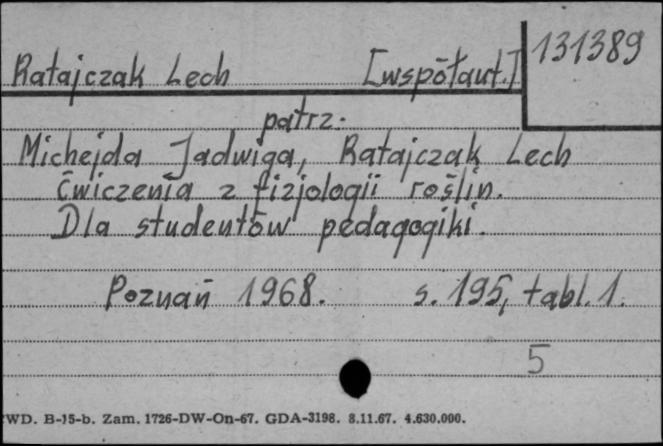 131389
Ratajczak Lech [współaut.]
patrz.
Michejda Jadwiga, Ratajczak Lech
Ćwiczenia z fizjologii roślin.
Dla studentów pedagogiki.
Poznań 1968. s. 195, tabl. 1.
5
WD. B-15-b. Zam. 1726-DW-On-67. GDA-3198. 8.11.67. 4.630.000.